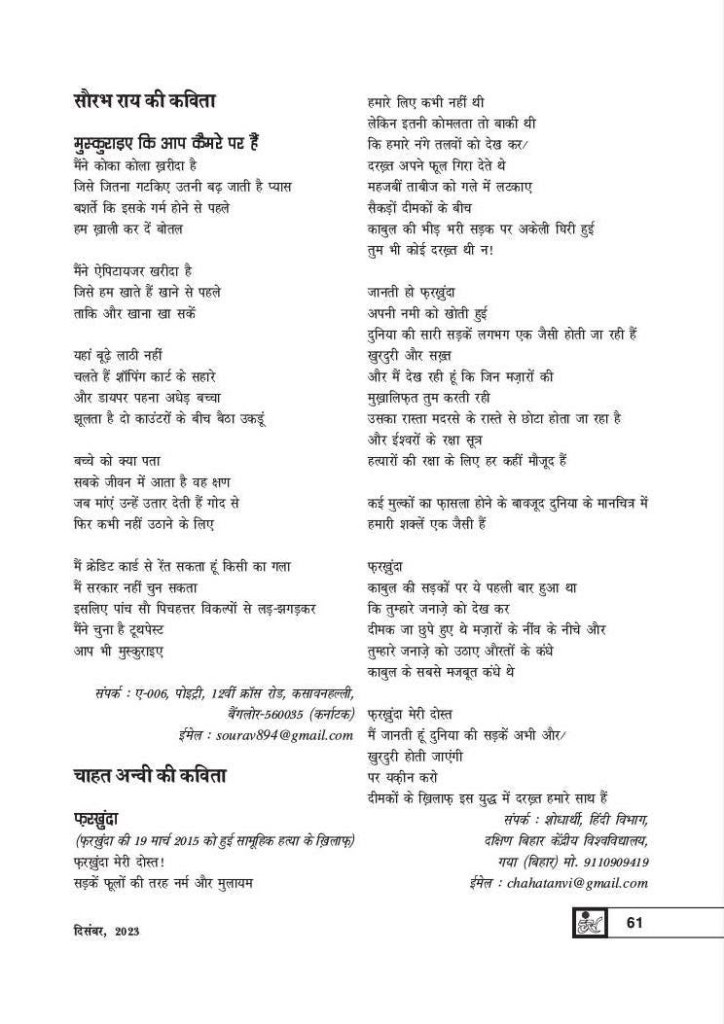 सौरभ राय की कविता
मुस्कुराइए कि आप कैमरे पर हैं
मैंने कोका कोला ख़रीदा है
जिसे जितना गटकिए उतनी बढ़ जाती है प्यास
बशर्ते कि इसके गर्म होने से पहले
हम ख़ाली कर दें बोतल
मैंने ऐपिटायजर खरीदा है
जिसे हम खाते हैं खाने से पहले
ताकि और खाना खा सकें
यहां बूढ़े लाठी नहीं
चलते हैं शॉपिंग कार्ट के सहारे
और डायपर पहना अधेड़ बच्चा
झूलता है दो काउंटरों के बीच बैठा उकडूं
बच्चे को क्या पता
सबके जीवन में आता है वह क्षण
जब मांएं उन्हें उतार देती हैं गोद से
फिर कभी नहीं उठाने के लिए
मैं क्रेडिट कार्ड से रेंत सकता हूं किसी का गला
मैं सरकार नहीं चुन सकता
इसलिए पांच सौ पिचहत्तर विकल्पों से लड़-झगड़कर
मैंने चुना है टूथपेस्ट
आप भी मुस्कुराइए
संपर्क : ए-006, पोइट्री, 12वीं क्रॉस रोड, कसावनहल्ली,
बैंगलोर-560035 (कर्नाटक)
ईमेल : sourav894@gmail.com
चाहत अन्वी की कविता
फ़रखुंदा
(फ़रखुंदा की 19 मार्च 2015 को हुई सामूहिक हत्या के ख़िलाफ़)
फ़रखुंदा मेरी दोस्त!
सड़कें फूलों की तरह नर्म और मुलायम
हमारे लिए कभी नहीं थी
लेकिन इतनी कोमलता तो बाकी थी
कि हमारे नंगे तलवों को देख कर/
दरख़्त अपने फूल गिरा देते थे
महजबीं ताबीज को गले में लटकाए
सैकड़ों दीमकों के बीच
काबुल की भीड़ भरी सड़क पर अकेली घिरी हुई
तुम भी कोई दरख़्त थी न!
जानती हो फ़रखुंदा
अपनी नमी को खोती हुई
दुनिया की सारी सड़कें लगभग एक जैसी होती जा रही हैं
खुरदुरी और सख़्त
और मैं देख रही हूं कि जिन मज़ारों की
मुख़ालिफ़त तुम करती रही
उसका रास्ता मदरसे के रास्ते से छोटा होता जा रहा है
और ईश्वरों के रक्षा सूत्र
हत्यारों की रक्षा के लिए हर कहीं मौजूद हैं
कई मुल्कों का फ़ासला होने के बावजूद दुनिया के मानचित्र में
हमारी शक्लें एक जैसी हैं
फ़रखुंदा
काबुल की सड़कों पर ये पहली बार हुआ था
कि तुम्हारे जनाज़े को देख कर
दीमक जा छुपे हुए थे मज़ारों के नींव के नीचे और
तुम्हारे जनाज़े को उठाए औरतों के कंधे
काबुल के सबसे मजबूत कंधे थे
फ़रखुंदा मेरी दोस्त
मैं जानती हूं दुनिया की सड़कें अभी और/
खुरदुरी होती जाएंगी
पर यक़ीन करो
दीमकों के ख़िलाफ़ इस युद्ध में दरख़्त हमारे साथ हैं
संपर्क : शोधार्थी, हिंदी विभाग,
दक्षिण बिहार केंद्रीय विश्वविद्यालय,
गया (बिहार) मो. 9110909419
ईमेल : chahatanvi@gmail.com
दिसंबर, 2023
हंस
61